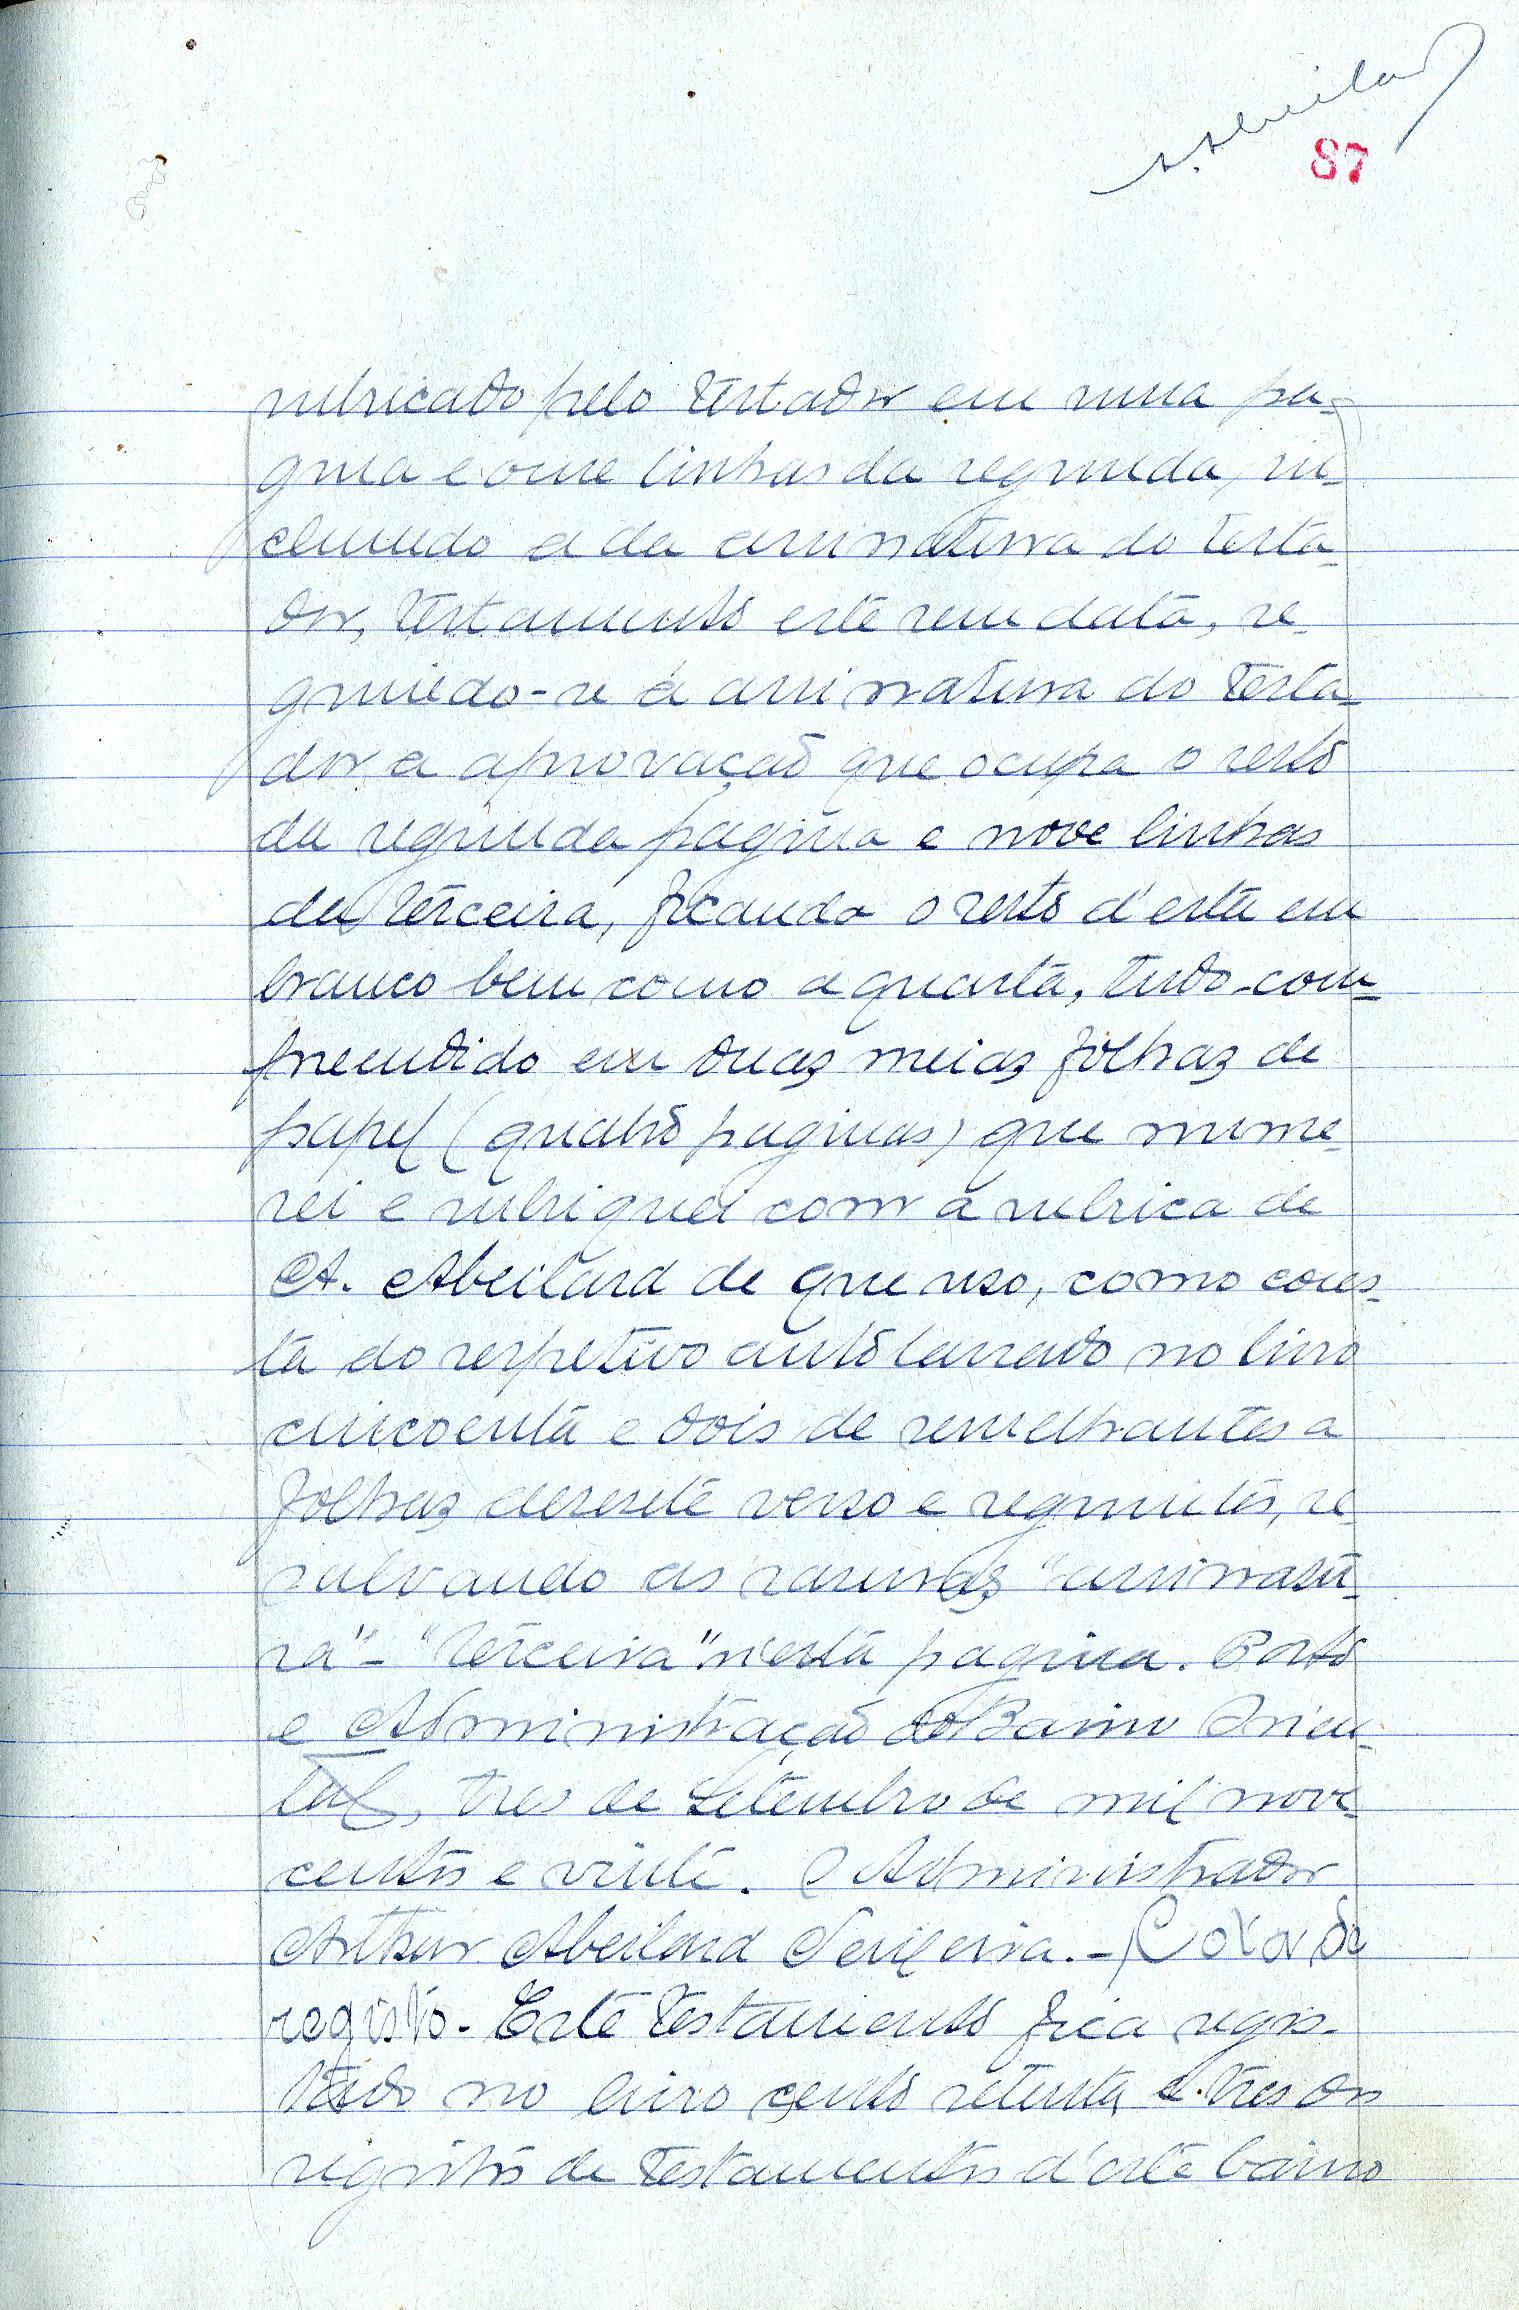 A. Abeilard
87
rubricado pelo testador em uma pa-
gina e onze linhas da segunda, in-
cluindo a da assinatura do testa-
dor, testamento este sem data, se-
guindo-se á assinatura do testa-
dor a aprovação que ocupa o resto
da segunda pagina e nove linhas
da terceira, ficando o resto d'esta em
branco bem como a quarta, tudo com-
preendido em duas meias folhas de
papel (quatro paginas) que nume-
rei e rubriquei com a rubrica de
A. Abeilard de que uso, como cons-
ta do respetivo auto lavrado no livro
cincoenta e dois de semelhantes a
folhas desesete verso e seguintes, re-
salvando as rasuras "assinatu-
ra" - "terceira" n'esta pagina. Porto
e Administração do Bairro Orien-
tal, tres de Setembro de mil nove-
centos e vinte. O Administrador
Arthur Abeilard Teixeira. - Cota de
registo. - Este testamento fica regis-
tado no livro cento setenta e tres dos
registos de testamentos d'este bairro